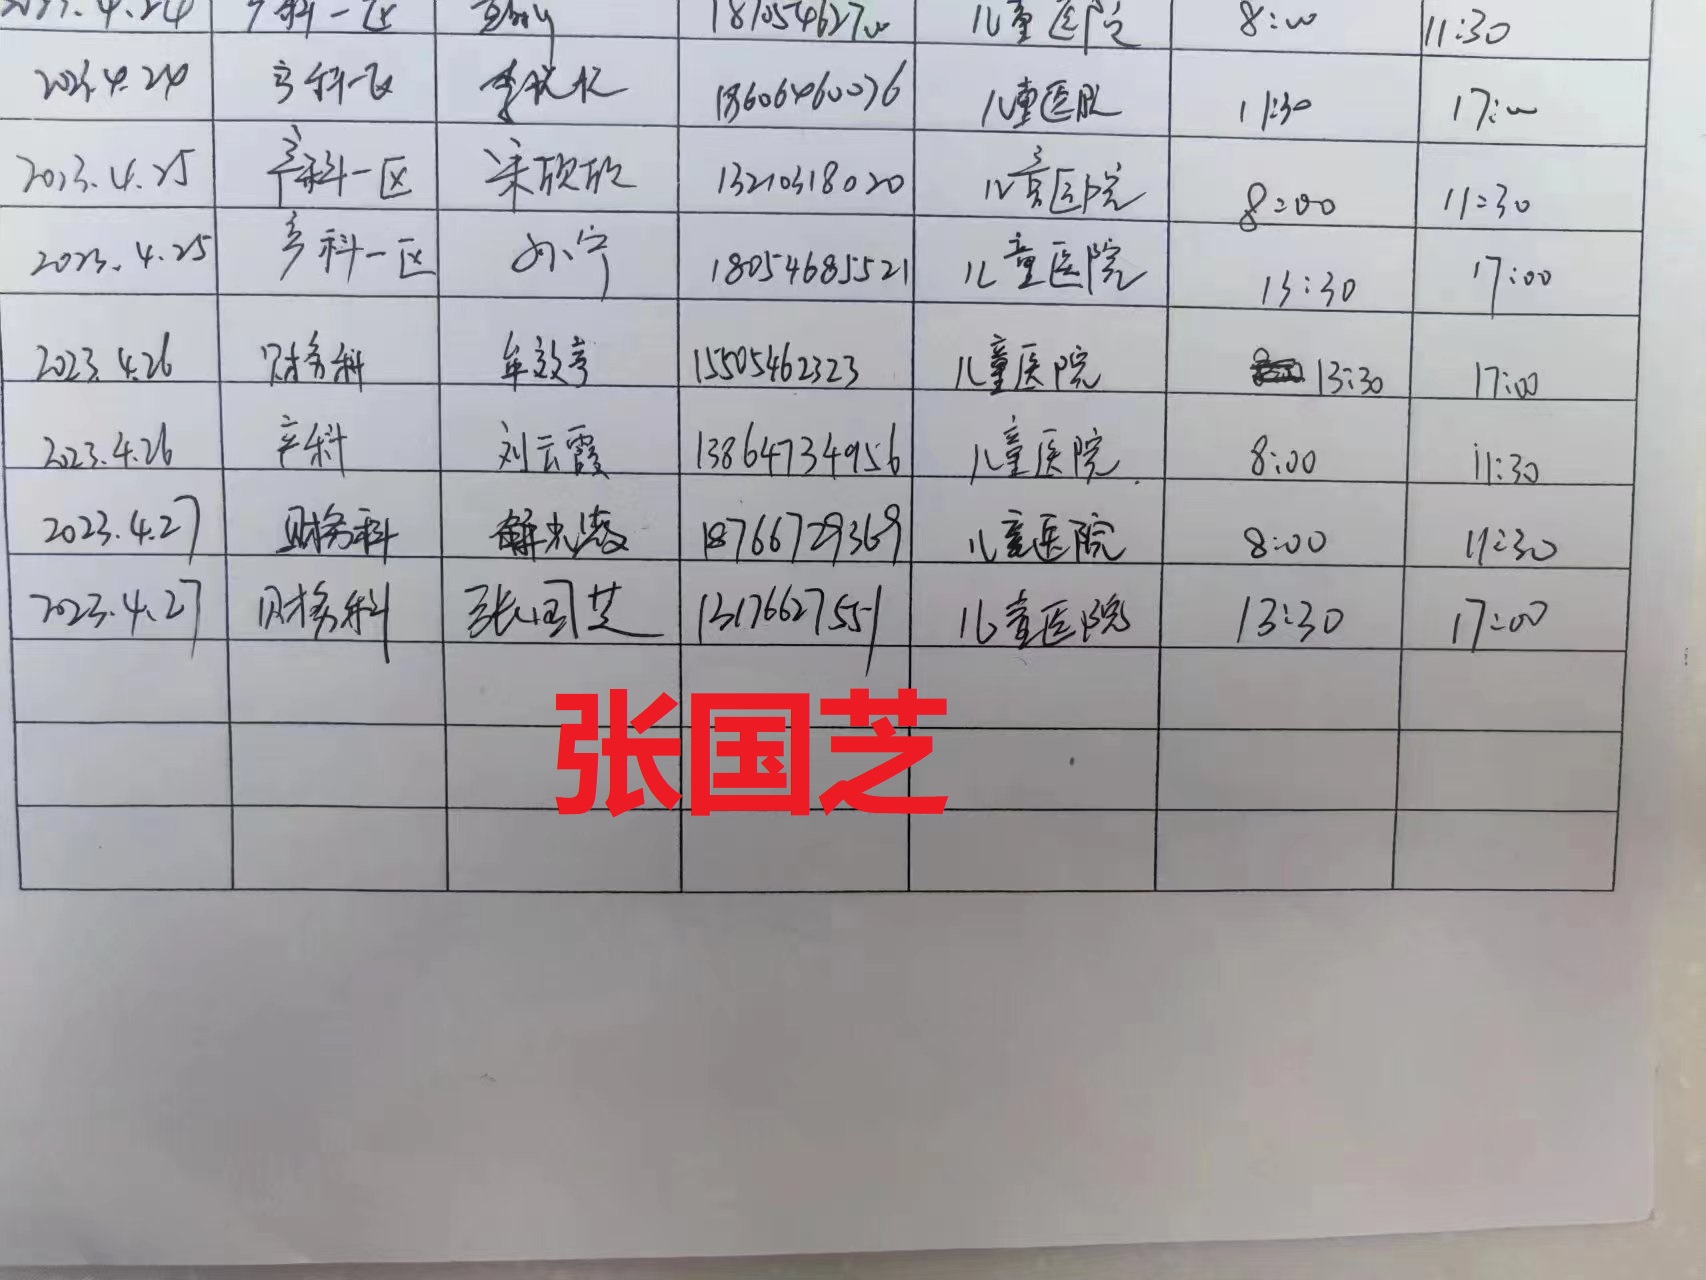 2023.4.24 产科一区 儿童医院 8:00 11:30
2023.4.24 产科一区 18606460076 儿童医院 11:30 17:00
2023.4.25 产科一区 宋欣欣 13210318020 儿童医院 8:00 11:30
2023.4.25 产科一区 孙宁 18054685521 儿童医院 13:30 17:00
2023.4.26 财务科 15505462323 儿童医院 13:30 17:00
2023.4.26 产科 刘云霞 13864734956 儿童医院 8:00 11:30
2023.4.27 财务科 18766729369 儿童医院 8:00 11:30
2023.4.27 财务科 张国芝 13176627551 儿童医院 13:30 17:00
张国芝